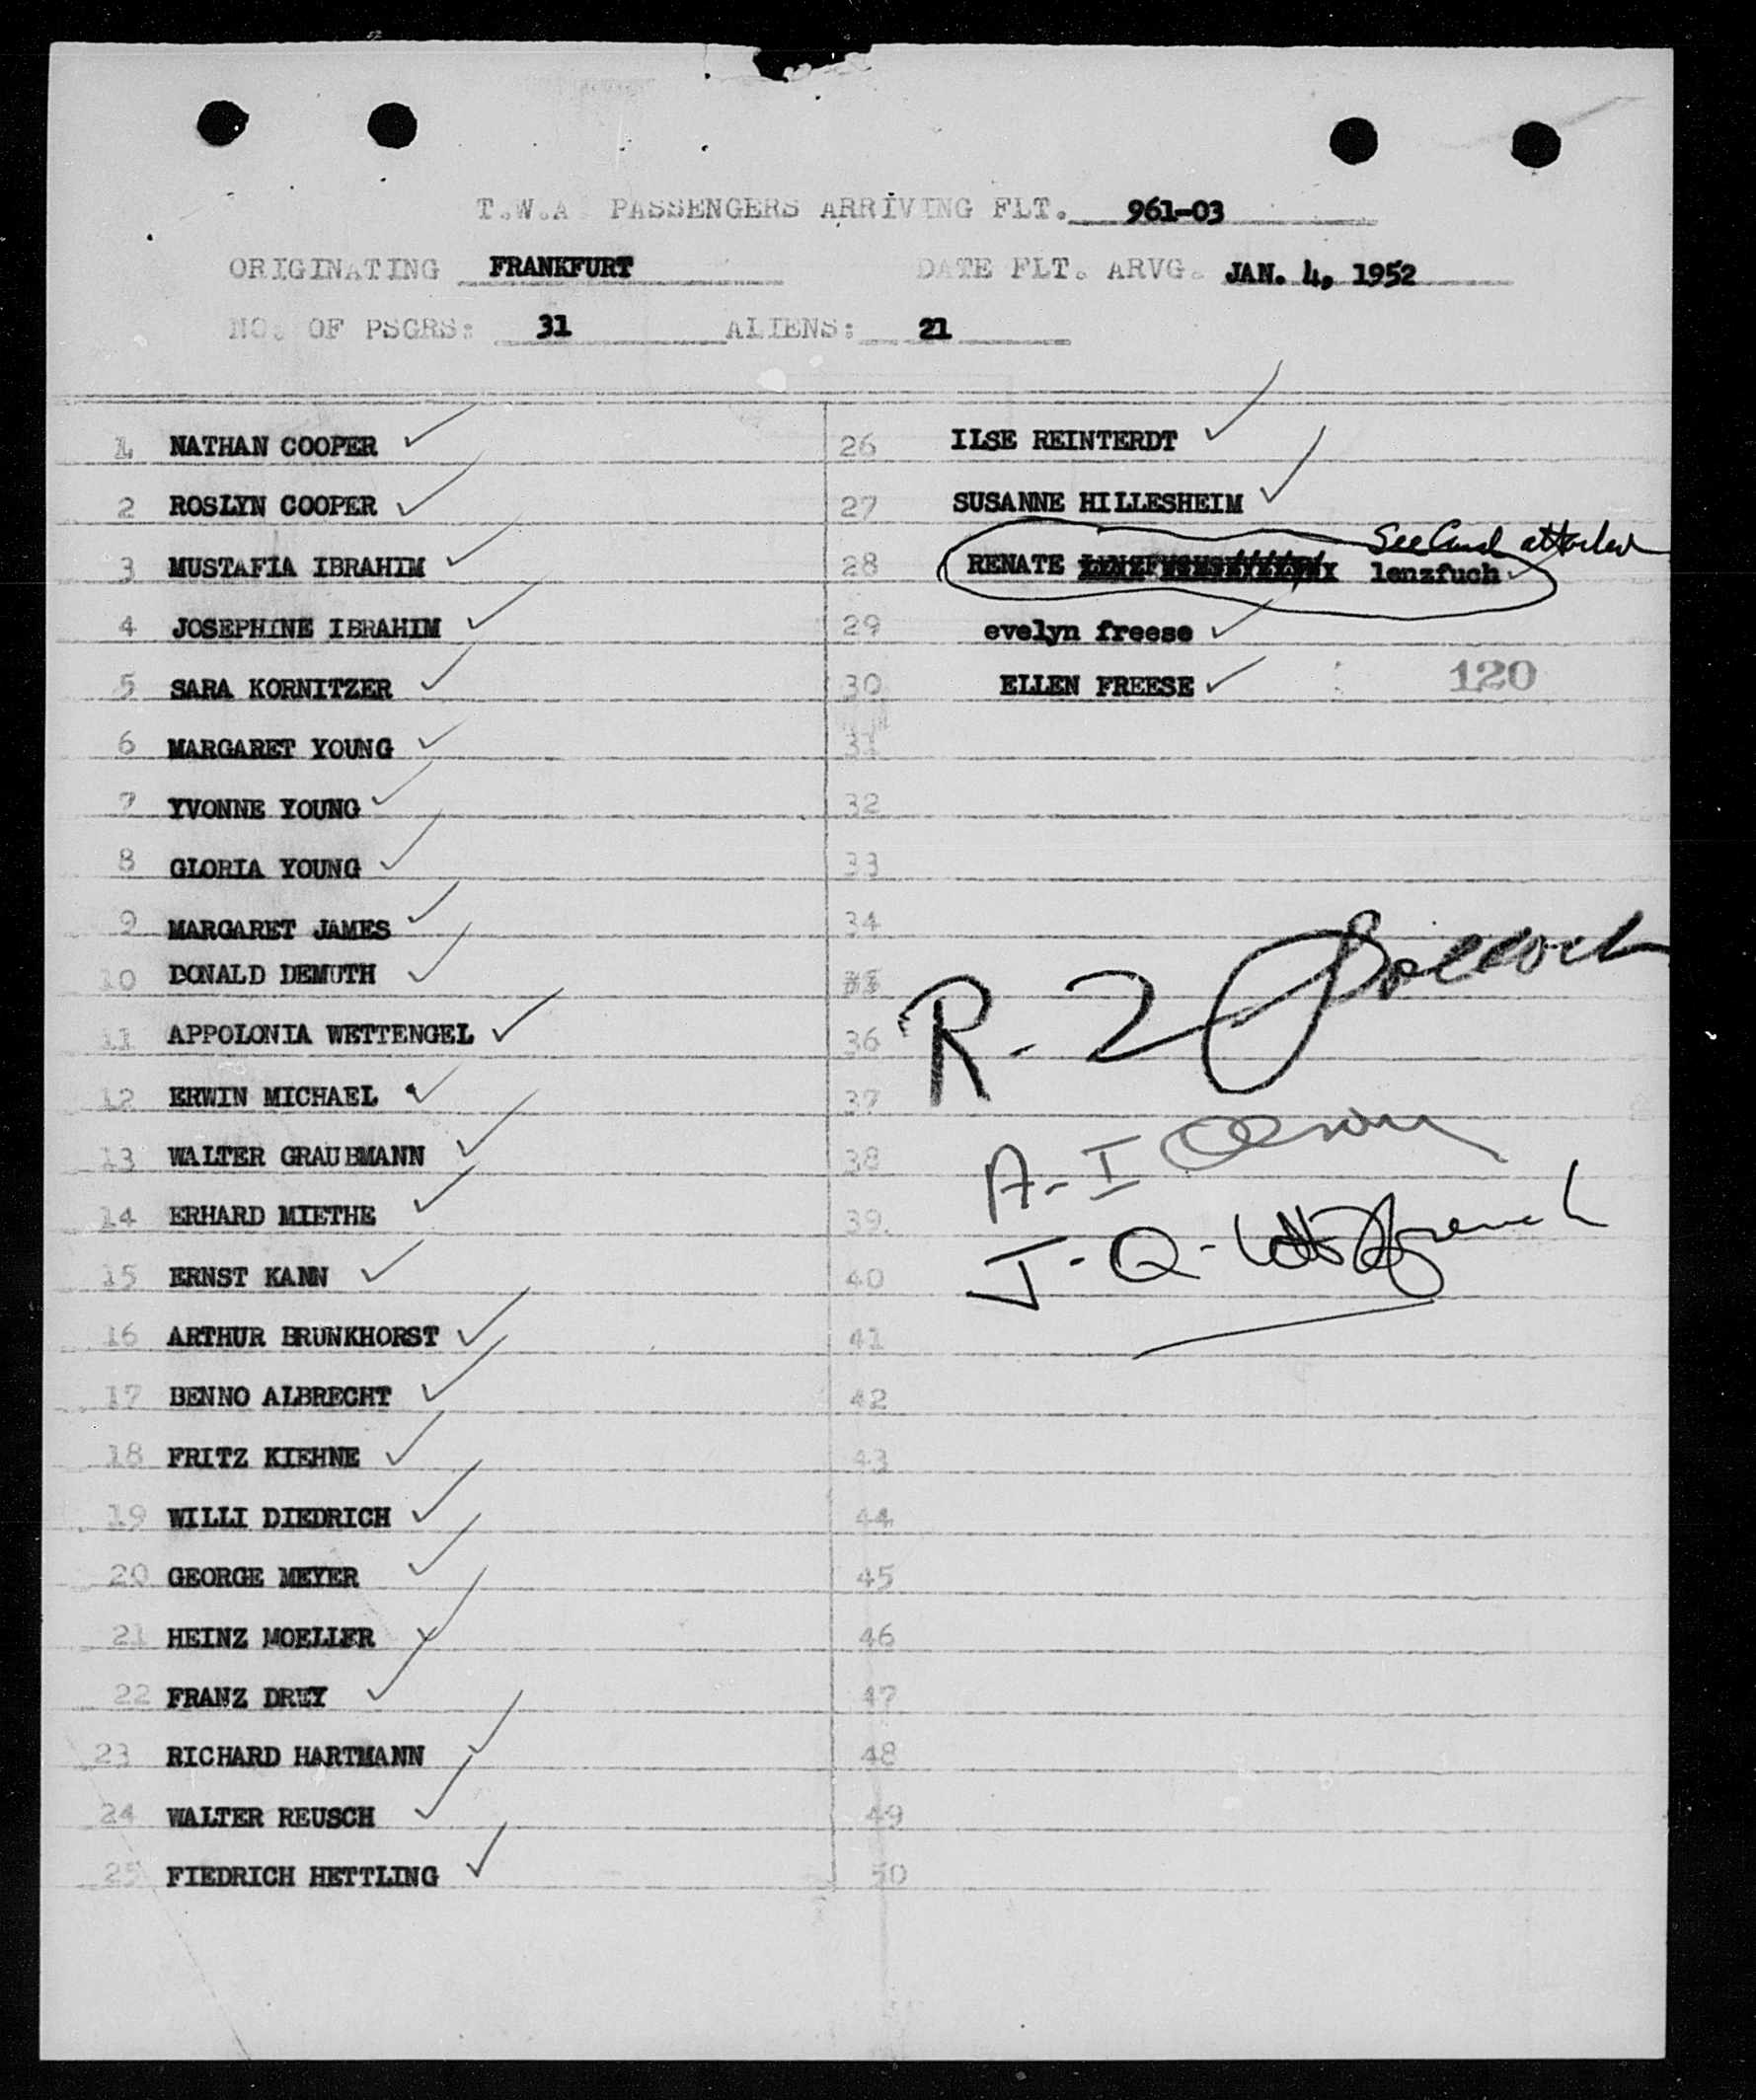 T.W.A PASSENGERS ARRIVING FLT. 961-03
ORIGINATING FRANKFURT DATE FLT. ARVG. JAN. 4, 1952
NO. OF PSGRS: 31 ALIENS: 21
1 NATHAN COOPER
2 ROSLYN COOPER
3 MUSTAFIA IBRAHIM
4 JOSEPHINE IBRAHIM
5 SARA KORNITZER
6 MARGARET YOUNG
7 YVONNE YOUNG
8 GLORIA YOUNG
9 MARGARET JAMES
10 DONALD DEMUTH
11 APPOLONIA WETTENGEL
12 ERWIN MICHAEL
13 WALTER GRAUBMANN
14 ERHARD MIETHE
15 ERNST KANN
16 ARTHUR BRUNKHORST
17 BENNO ALBRECHT
18 FRITZ KIEHNE
19 WILLI DIEDRICH
20 GEORGE MEYER
21 HEINZ MOELLER
22 FRANZ DREY
23 RICHARD HARTMANN
24 WALTER REUSCH
25 FIEDRICH HETTLING
26 ILSE REINTERDT
27 SUSANNE HILLESHEIM
See Card attached
28 RENATE lenzfuch
29 evelyn freese
30 ELLEN FREESE
120
31
32
33
34
36
37
38
39.
40
41
42
43
44
45
46
47
48
49
50
R-2
A-I
J-Q-